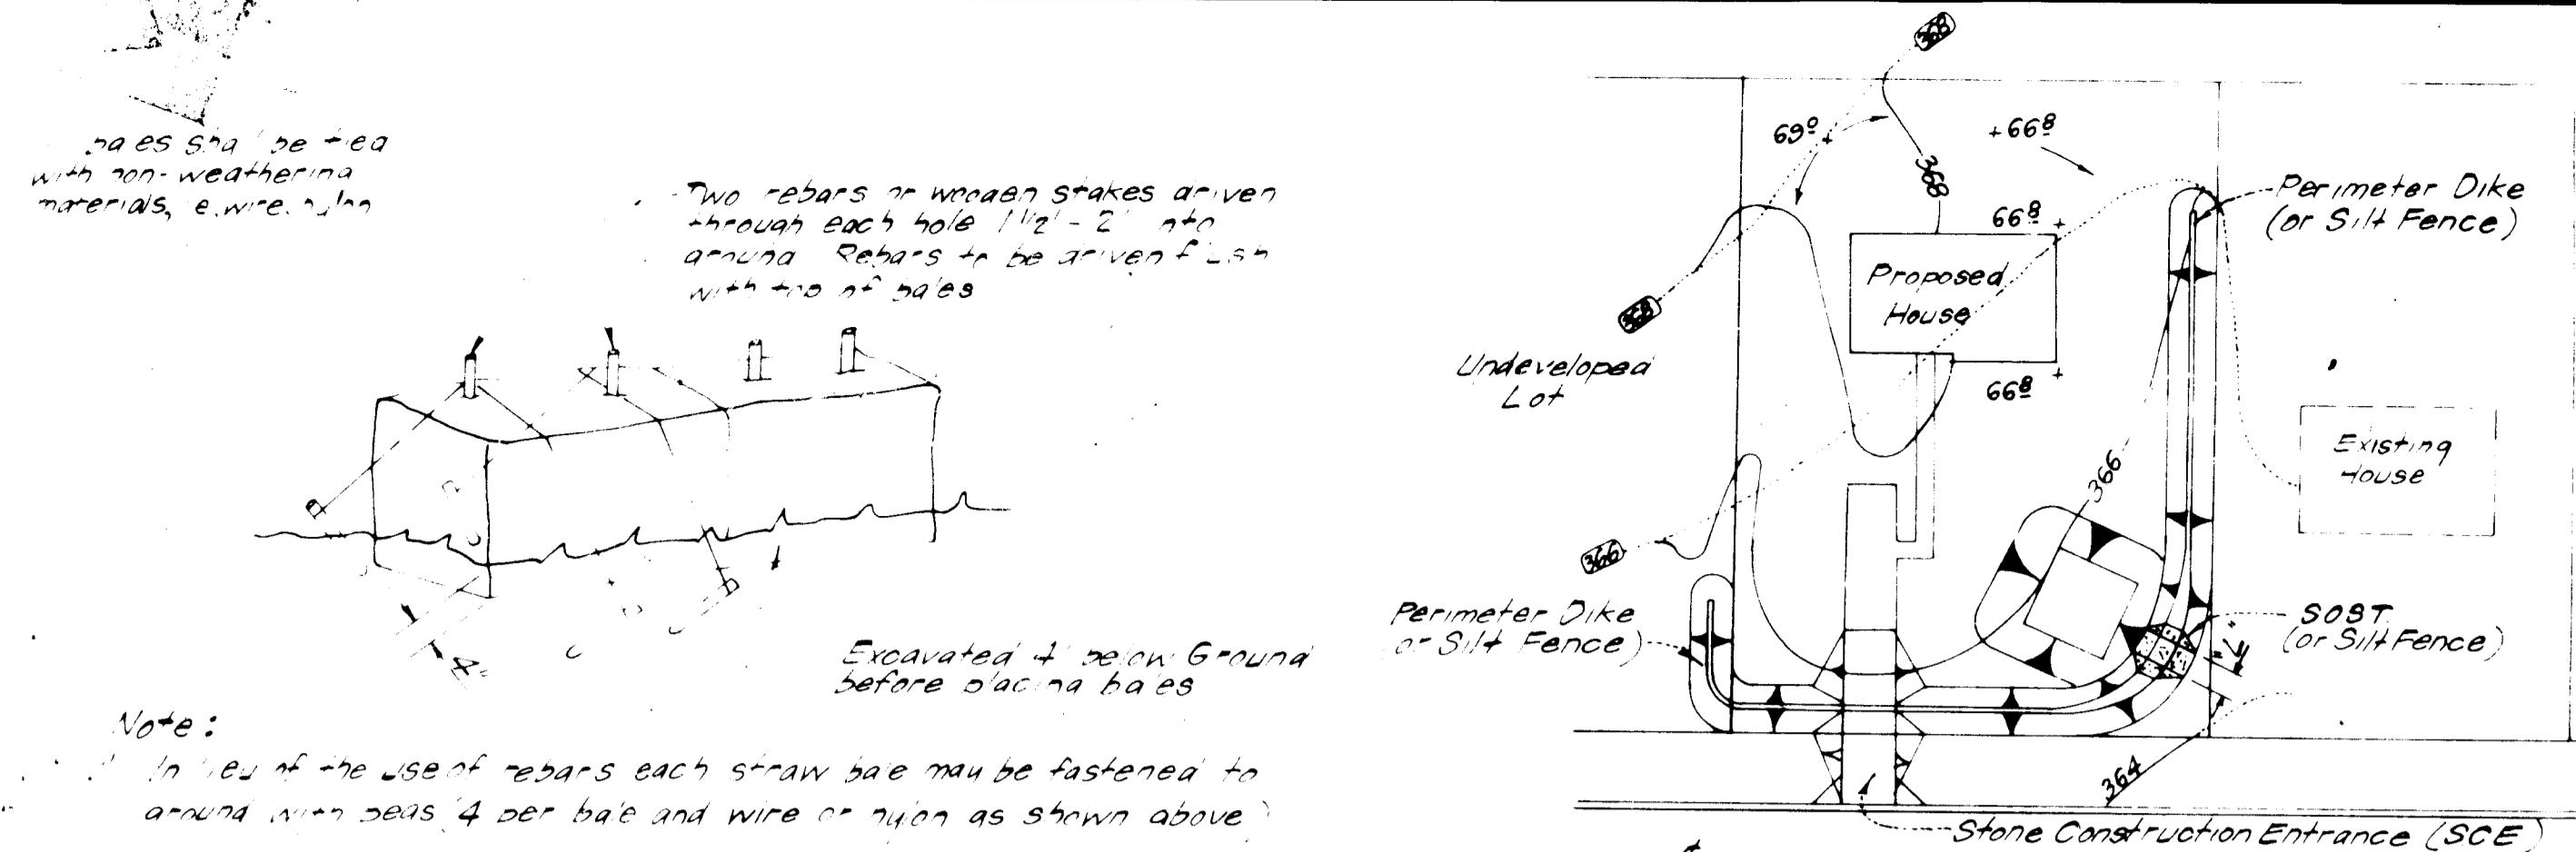 bales shall be tied
with non-weathering
materials, i.e. wire, nylon
Two rebars or wooden stakes driven
through each hole 1 1/2' - 2' into
ground Rebars to be driven flush
with top of bales
Excavated 4" below Ground
before placing bales
Note:
In lieu of the use of rebars each straw bale may be fastened to
ground with pegs (4 per bale and wire or nylon as shown above)
368
69º
+66⁸
368
66⁸ +
Perimeter Dike
(or Silt Fence)
Proposed
House
368
Undeveloped
Lot
66⁸ +
Existing
House
366
366
Perimeter Dike
or Silt Fence)
SOST
(or Silt Fence)
364
Stone Construction Entrance (SCE)